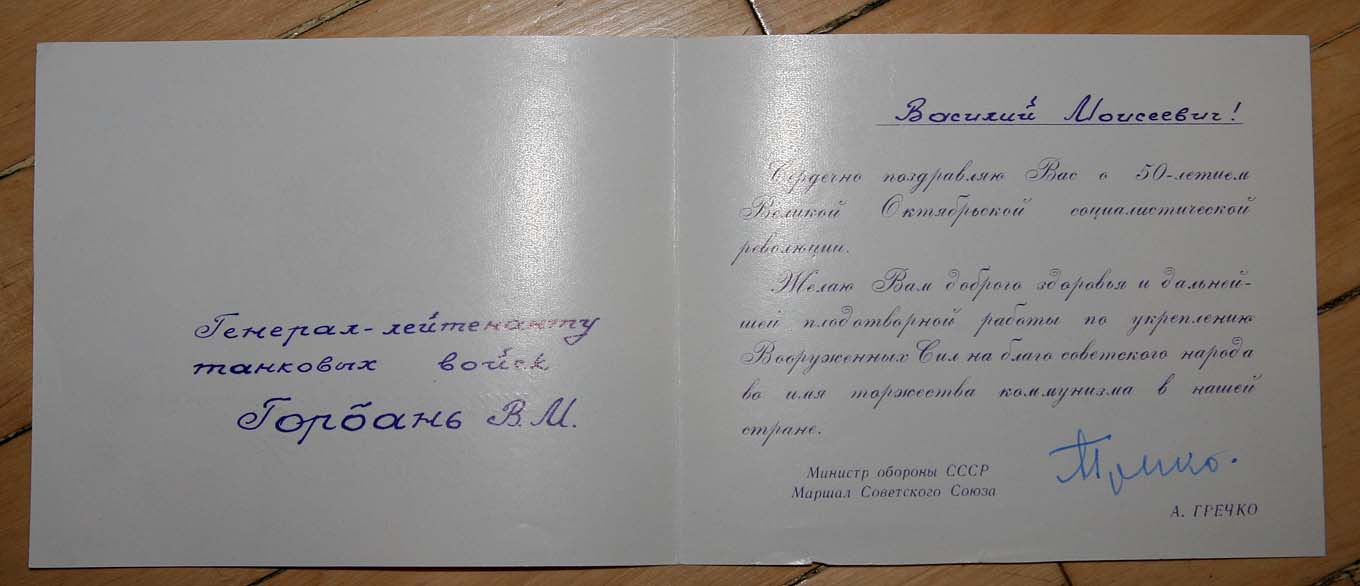 Генерал-лейтенанту
танковых войск
Горбань В.М.
Василий Моисеевич!
Сердечно поздравляю Вас с 50-летием
Великой Октябрьской социалистической
революции.
Желаю Вам доброго здоровья и дальней-
шей плодотворной работы по укреплению
Вооруженных Сил на благо советского народа
во имя торжества коммунизма в нашей
стране.
Министр обороны СССР
Маршал Советского Союза
Гречко
А. ГРЕЧКО